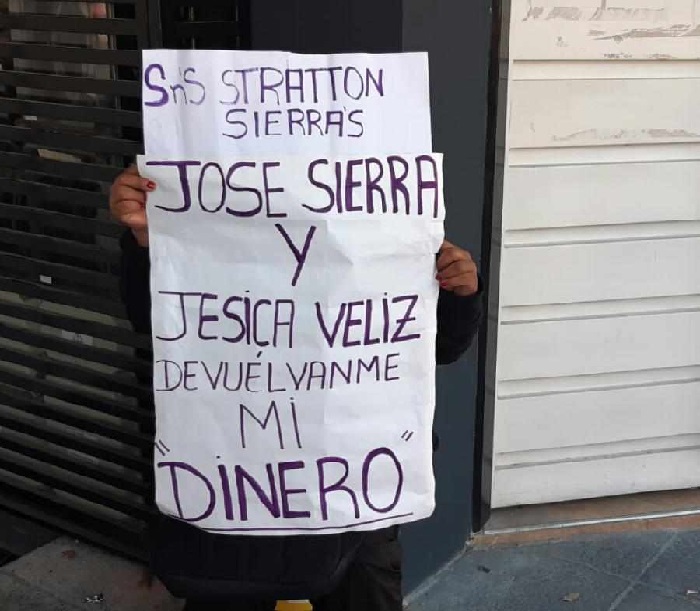 Sn'S STRATTON
SIERRA'S
JOSE SIERRA
Y
JESICA VELIZ
DEVUÉLVANME
MI
"DINERO"